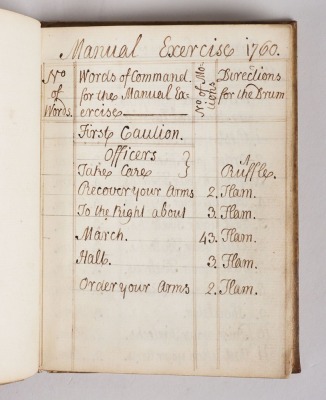 Manual Exercise 1760.
No of Words. Words of Command for the Manual Exercise No of Motions Directions for the Drum
First Caution.
Officers
Take Care } A Ruffle.
Recover your Arms 2. Flam.
To the Right about 3. Flam.
March. 43. Flam.
Halt. 3. Flam.
Order your Arms 2. Flam.